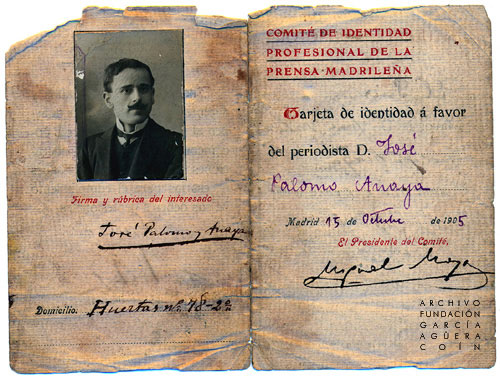 Firma y rúbrica del interesado
José Palomo y Anaya
Domicilio. Huertas nº 78-2º
COMITÉ DE IDENTIDAD
PROFESIONAL DE LA
PRENSA·MADRILEÑA
Tarjeta de identidad á favor
del periodista D. José
Palomo Anaya
Madrid 15 de Octubre de 1905
El Presidente del Comité,
Miguel Moya
ARCHIVO
FUNDACIÓN
GARCÍA
AGÜERA
COÍN